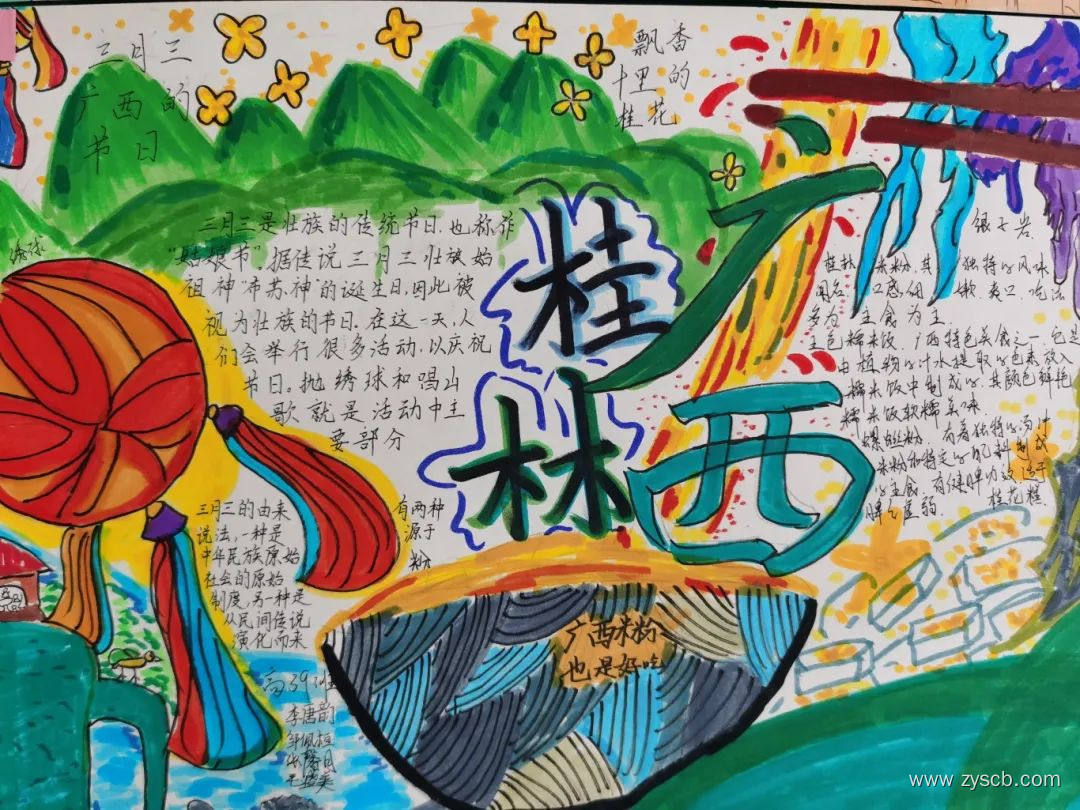 三月三
广西的
节日
飘香
十里的
桂花
绣球
三月三是壮族的传统节日,也称作
据传说三月三壮族始
祖神"布苏神"的诞生日,因此被
视为壮族的节日.在这一天,人
们会举行很多活动,以庆祝
节日。抛绣球和唱山
歌就是活动中主
要部分
桂林
广西
银子岩
桂林米粉,其独特的风味
闻名,口感细软、爽口、吃法
多为主食为主.
五色糯米饭,广西特色美食之一,它是
由植物的汁水提取的色素放入
糯米饭中制成的,其颜色鲜艳
糯米饭软糯美味
螺蛳粉 有着独特的汤汁
米粉和特定的配料制成
的主食,有健脾
脾气虚弱.
桂花糕
三月三的由来
有两种
说法,一种是
源于
中华民族原始
社会的原始
制度,另一种是
从民间传说
演化而来
粉
广西米粉
也是好吃
高39班
李唐韵
www.zyscb.com